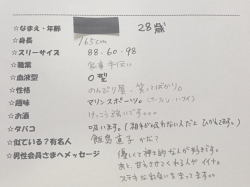 ☆なまえ・年齢 28歳
☆身長 165cm
☆スリーサイズ 88.60.98
☆職業 家事手伝い
☆血液型 O型
☆性格 のんびり屋、笑ってばかり。
☆趣味 マリンスポーツ。
☆お酒 けっこう強いです。
☆タバコ 吸います。(相手が吸わない人だと ひかえてます。)
☆似ている?有名人 飯島直子 かな?
☆男性会員さまへメッセージ 優しくて紳士的な人が好きです。
あと、甘えさせてくれる人がイイナ。
ステキな出会いを待ってます。